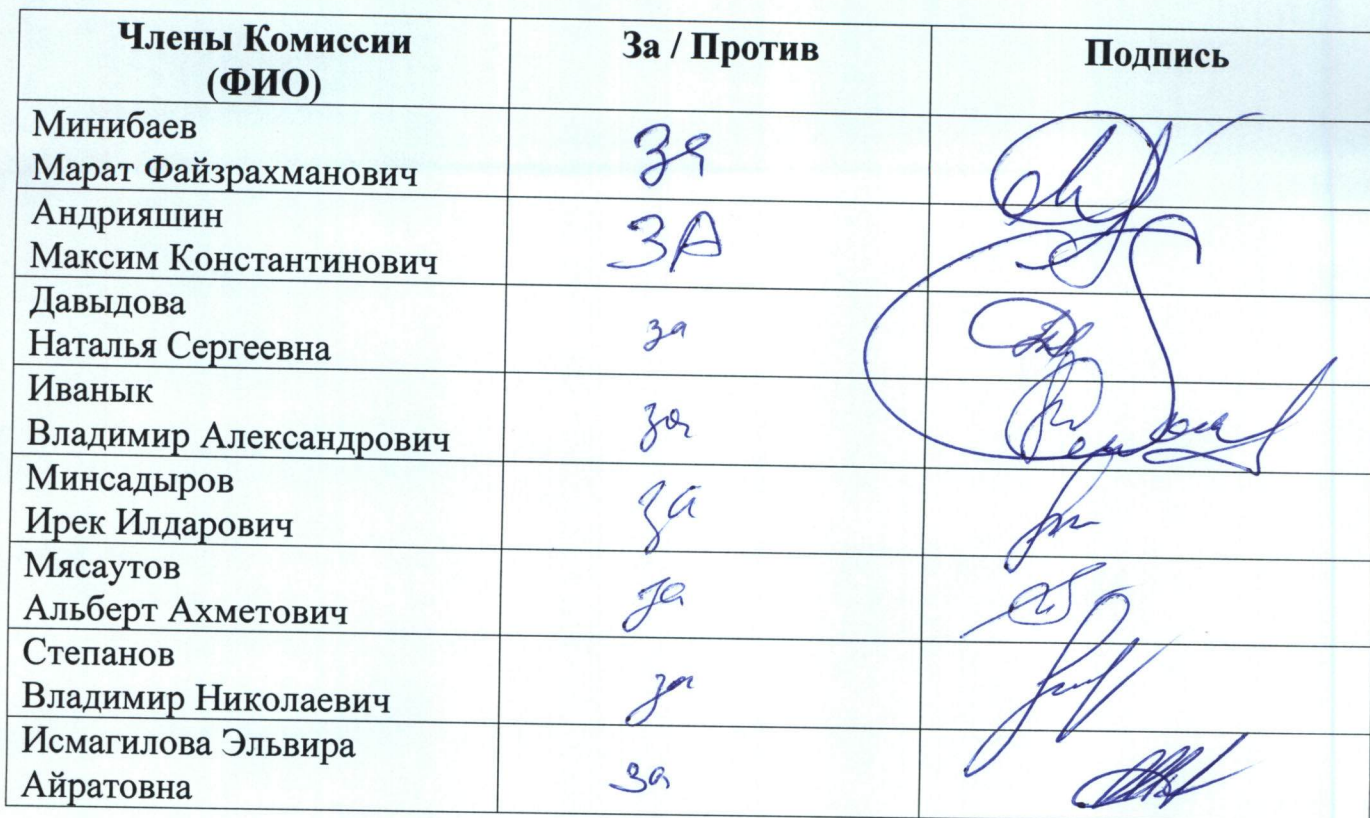 Члены Комиссии
(ФИО)
За / Против
Подпись
Минибаев
Марат Файзрахманович
За
Андрияшин
Максим Константинович
ЗА
Давыдова
Наталья Сергеевна
за
Иванык
Владимир Александрович
за
Минсадыров
Ирек Илдарович
за
Мясаутов
Альберт Ахметович
за
Степанов
Владимир Николаевич
за
Исмагилова Эльвира
Айратовна
за